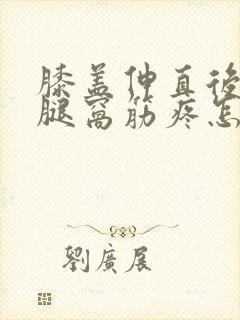 膝盖伸直後
腿窝筋疼怎
劉廣展